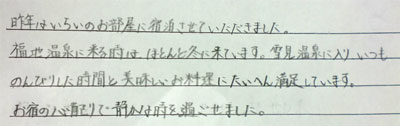 昨年はいちいのお部屋に宿泊させていただきました。
福地温泉に来る時は、ほとんど冬に来ています。雪見温泉に入り、いつも
のんびりした時間と美味しいお料理にたいへん満足しています。
お宿の心配りで静かな時を過ごせました。